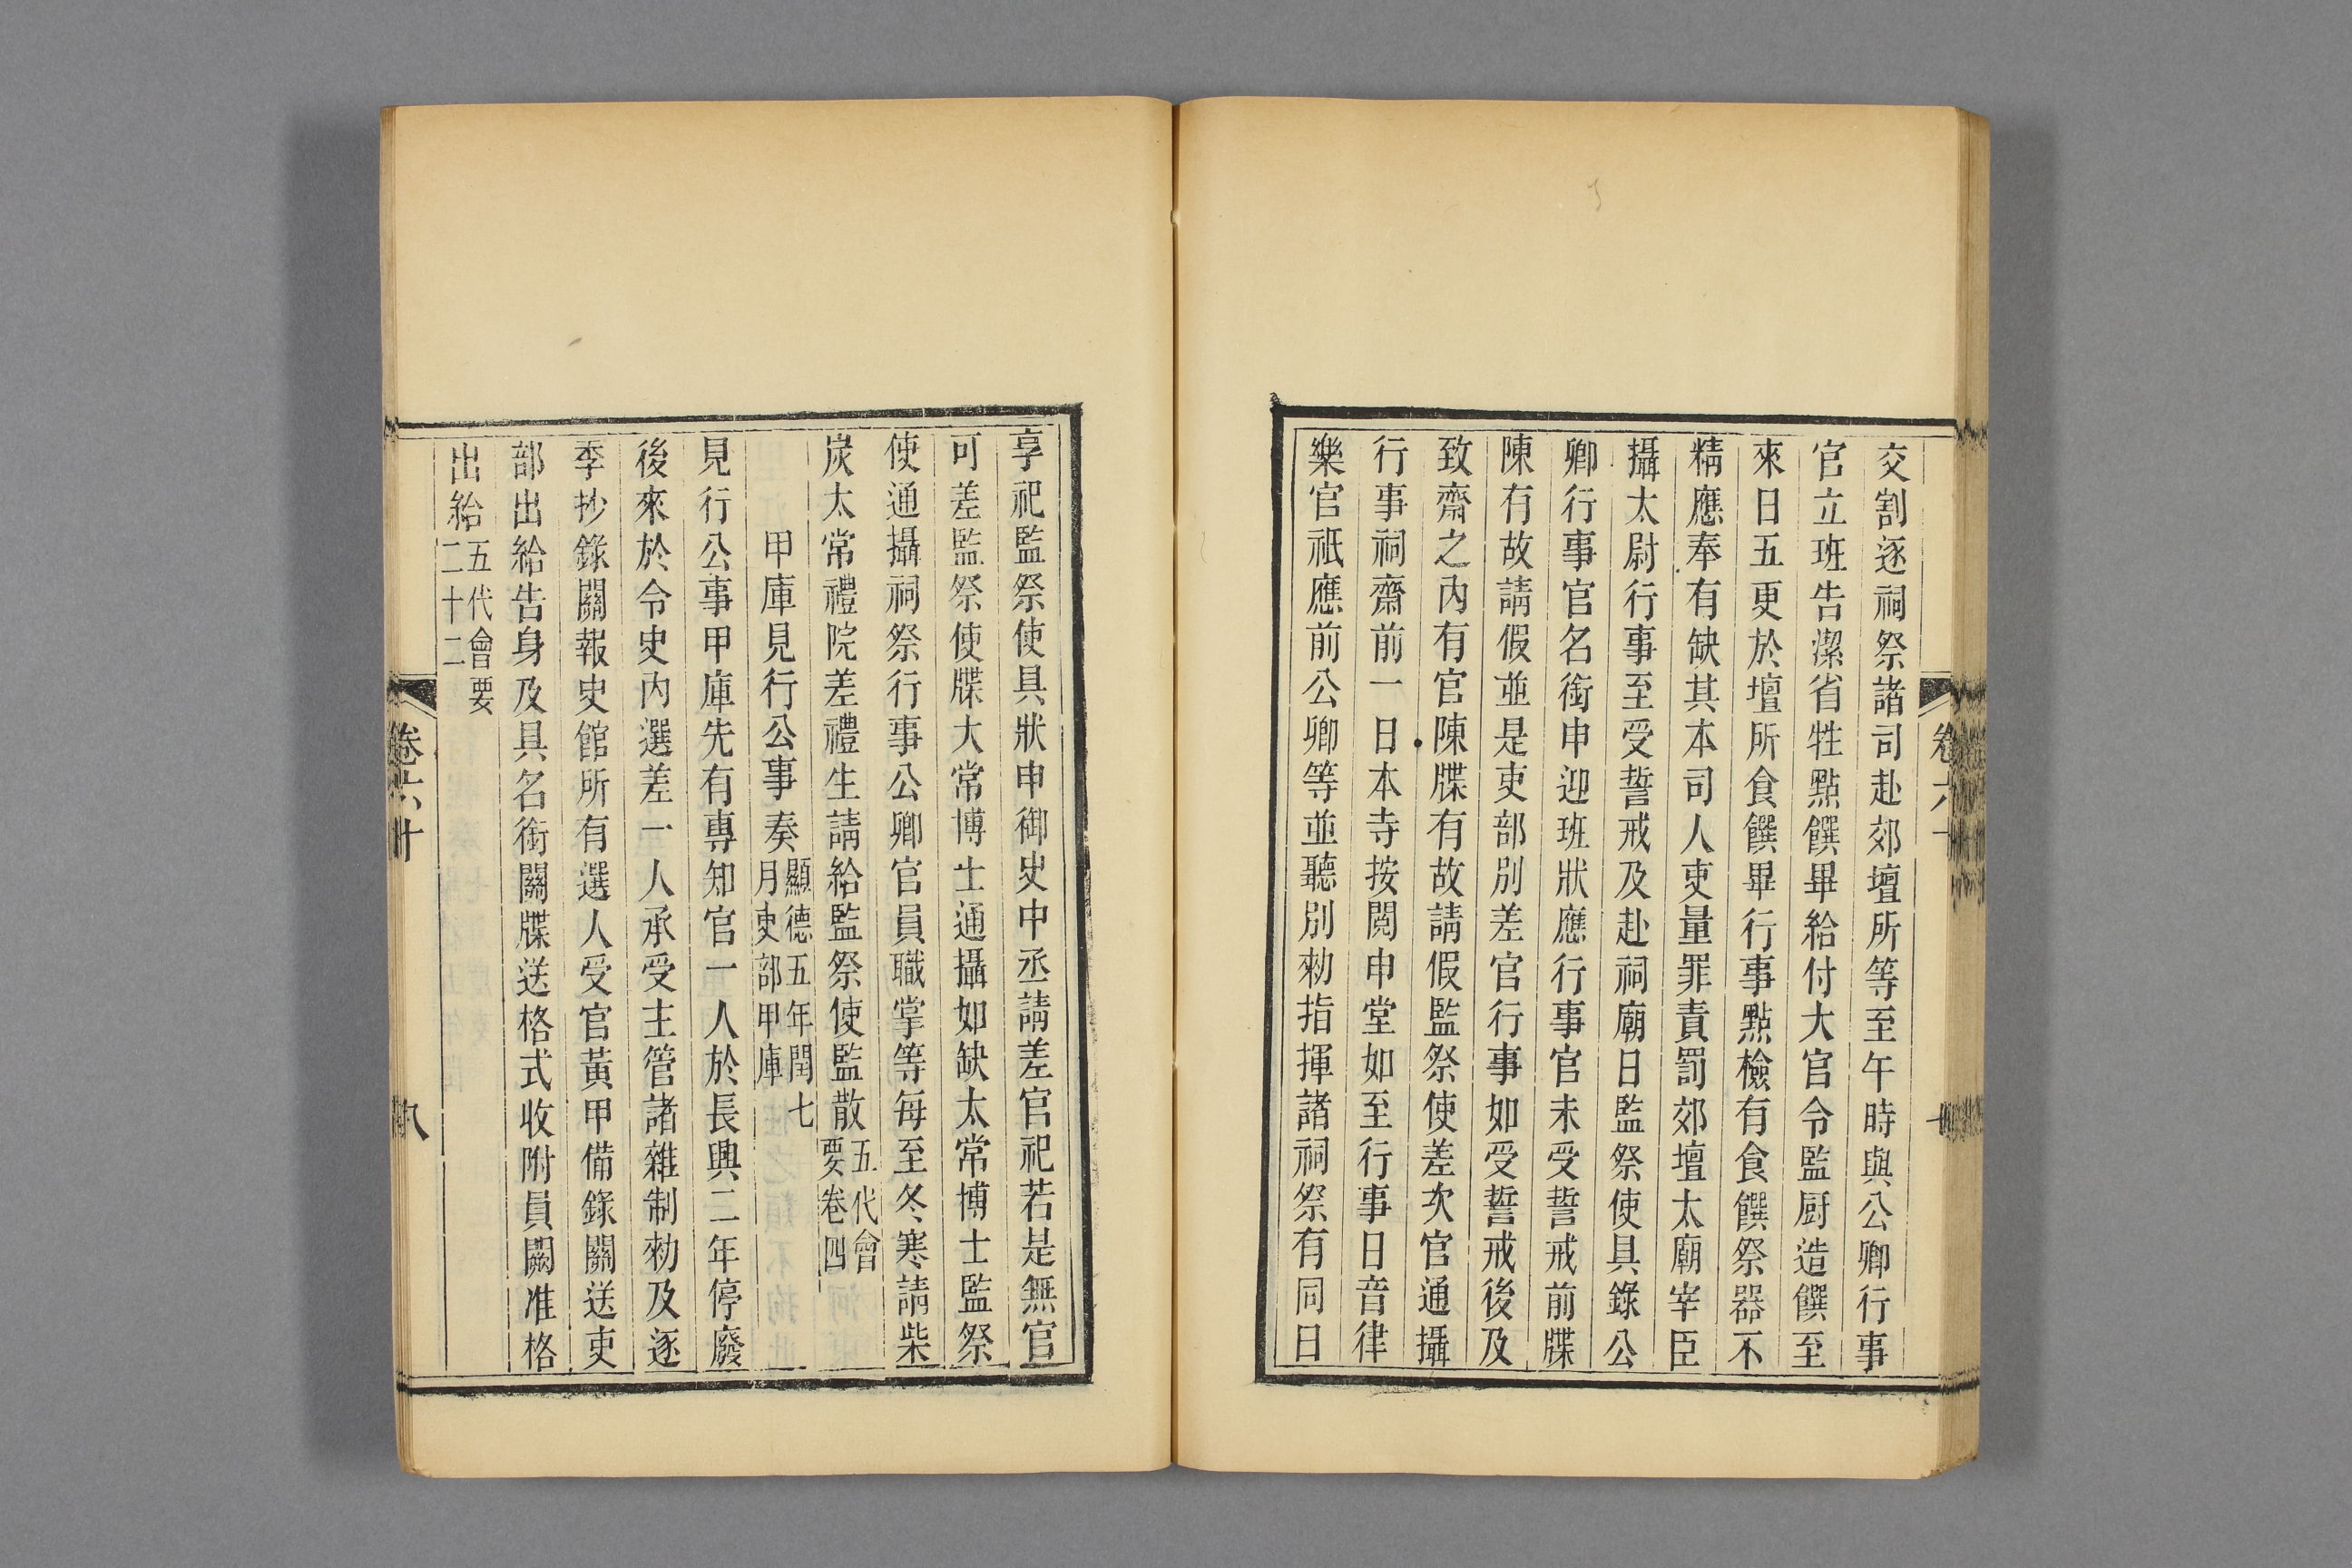 交割逐祠祭諸司赴郊壇所等至午時與公卿行事
官立班告潔省牲點饌畢給付大官令監厨造饌至
來日五更於壇所食饌畢行事點檢有食饌祭器不
精應奉有缺其本司人吏量罪責罰郊壇太廟宰臣
攝太尉行事至受誓戒及赴祠廟日監祭使具錄公
卿行事官名銜申迎班狀應行事官未受誓戒前牒
陳有故請假並是吏部別差官行事如受誓戒後及
致齋之內有官陳牒有故請假監祭使差次官通攝
行事祠齋前一日本寺按閱申堂如至行事日音律
樂官祇應前公卿等並聽別勑指揮諸祠祭有同日
享祀監祭使具狀申御史中丞請差官祀若是無官
可差監祭使牒大常博士通攝如缺太常博士監祭
使通攝祠祭行事公卿官員職掌等每至冬寒請柴
炭太常禮院差禮生請給監祭使監散五代會
要卷四
甲庫見行公事奏顯德五年閏七
月吏部甲庫
見行公事甲庫先有專知官一人於長興二年停廢
後來於令史內選差一人承受主管諸雜制勑及逐
季抄錄關報史館所有選人受官黃甲備錄關送吏
部出給告身及具名銜關牒送格式收附員闕准格
出給五代會要
二十二
卷六十